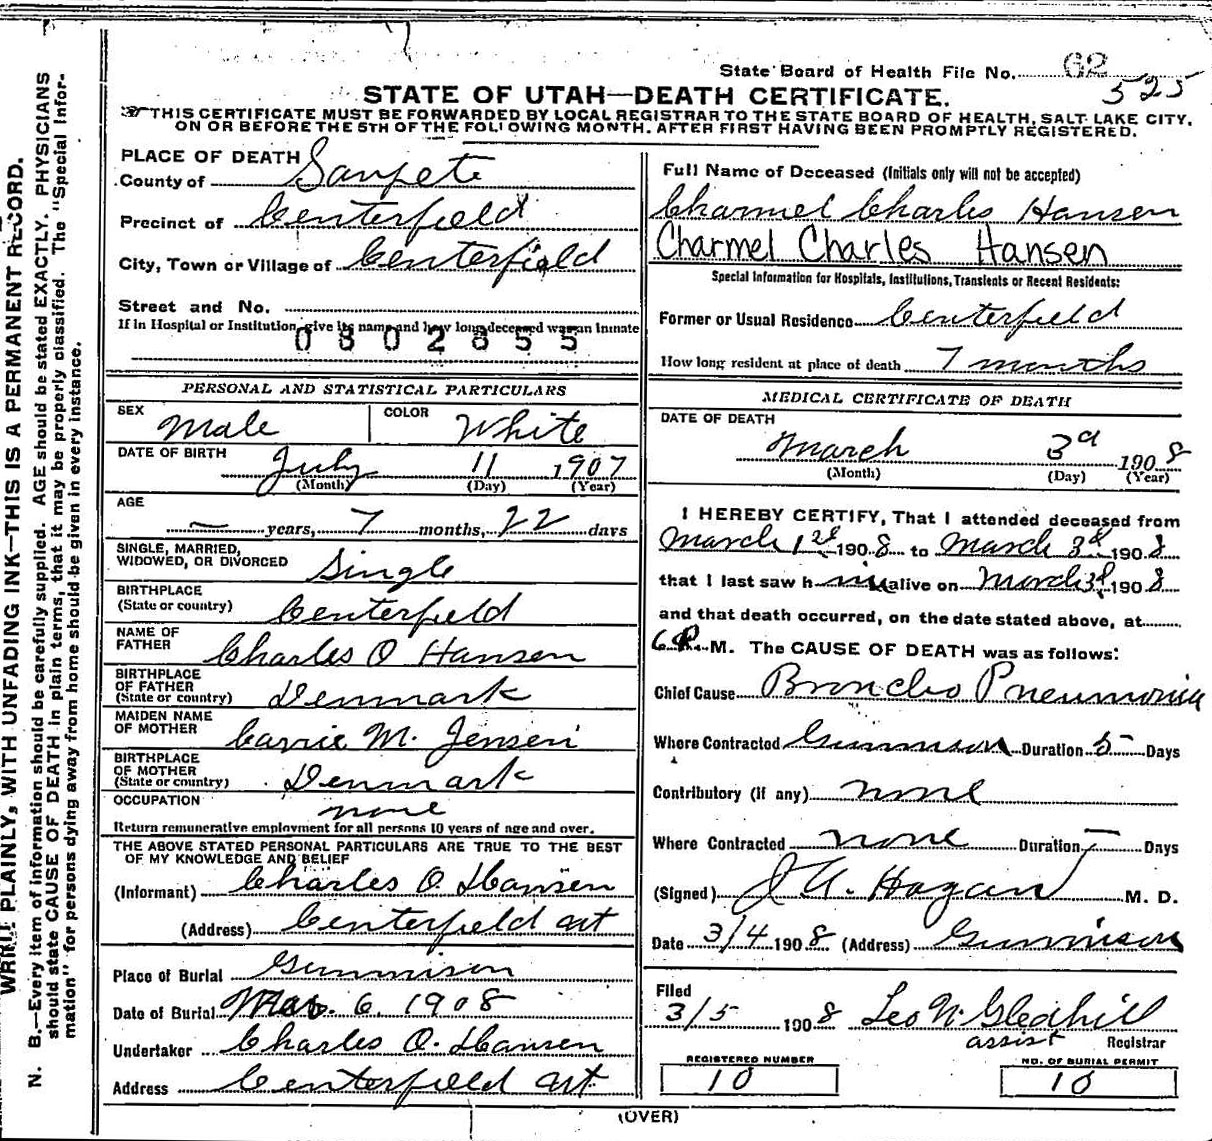 State Board of Health File No. 62
525
STATE OF UTAH—DEATH CERTIFICATE.
THIS CERTIFICATE MUST BE FORWARDED BY LOCAL REGISTRAR TO THE STATE BOARD OF HEALTH, SALT LAKE CITY,
ON OR BEFORE THE 5TH OF THE FOLLOWING MONTH. AFTER FIRST HAVING BEEN PROMPTLY REGISTERED.
WRITE PLAINLY, WITH UNFADING INK—THIS IS A PERMANENT RECORD.
N. B.—Every item of information should be carefully supplied. AGE should be stated EXACTLY. PHYSICIANS
should state CAUSE OF DEATH in plain terms, that it may be properly classified. The "Special Infor-
mation" for persons dying away from home should be given in every instance.
PLACE OF DEATH
County of Sanpete
Precinct of Centerfield
City, Town or Village of Centerfield
Street and No.
If in Hospital or Institution, give its name and how long deceased was an inmate
0802855
PERSONAL AND STATISTICAL PARTICULARS
SEX Male COLOR White
DATE OF BIRTH July 11 1907
(Month) (Day) (Year)
AGE
— years, 7 months, 22 days
SINGLE, MARRIED,
WIDOWED, OR DIVORCED Single
BIRTHPLACE
(State or country) Centerfield
NAME OF
FATHER Charles O Hansen
BIRTHPLACE
OF FATHER
(State or country) Denmark
MAIDEN NAME
OF MOTHER Carrie M. Jensen
BIRTHPLACE
OF MOTHER
(State or country) Denmark
OCCUPATION none
Return remunerative employment for all persons 10 years of age and over.
THE ABOVE STATED PERSONAL PARTICULARS ARE TRUE TO THE BEST
OF MY KNOWLEDGE AND BELIEF
(Informant) Charles O. Hansen
(Address) Centerfield ut
Place of Burial Gunnison
Date of Burial Mar. 6. 1908
Undertaker Charles O. Hansen
Address Centerfield ut.
Full Name of Deceased (Initials only will not be accepted)
Charmel Charles Hansen
Charmel Charles Hansen
Special Information for Hospitals, Institutions, Transients or Recent Residents:
Former or Usual Residence Centerfield
How long resident at place of death 7 months
MEDICAL CERTIFICATE OF DEATH
DATE OF DEATH
March 3d 1908
(Month) (Day) (Year)
I HEREBY CERTIFY, That I attended deceased from
March 1st 1908 to March 3d 1908
that I last saw him alive on March 3d 1908
and that death occurred, on the date stated above, at
6 P. M. The CAUSE OF DEATH was as follows:
Chief Cause Broncho Pneumonia
Where Contracted Gunnison Duration 5 Days
Contributory (if any) none
Where Contracted none Duration — Days
(Signed) J A. Hagan M. D.
Date 3/4 1908 (Address) Gunnison
Filed
3/5 1908 Leo N. Gledhill
assist Registrar
REGISTERED NUMBER
10
NO. OF BURIAL PERMIT
10
(OVER)